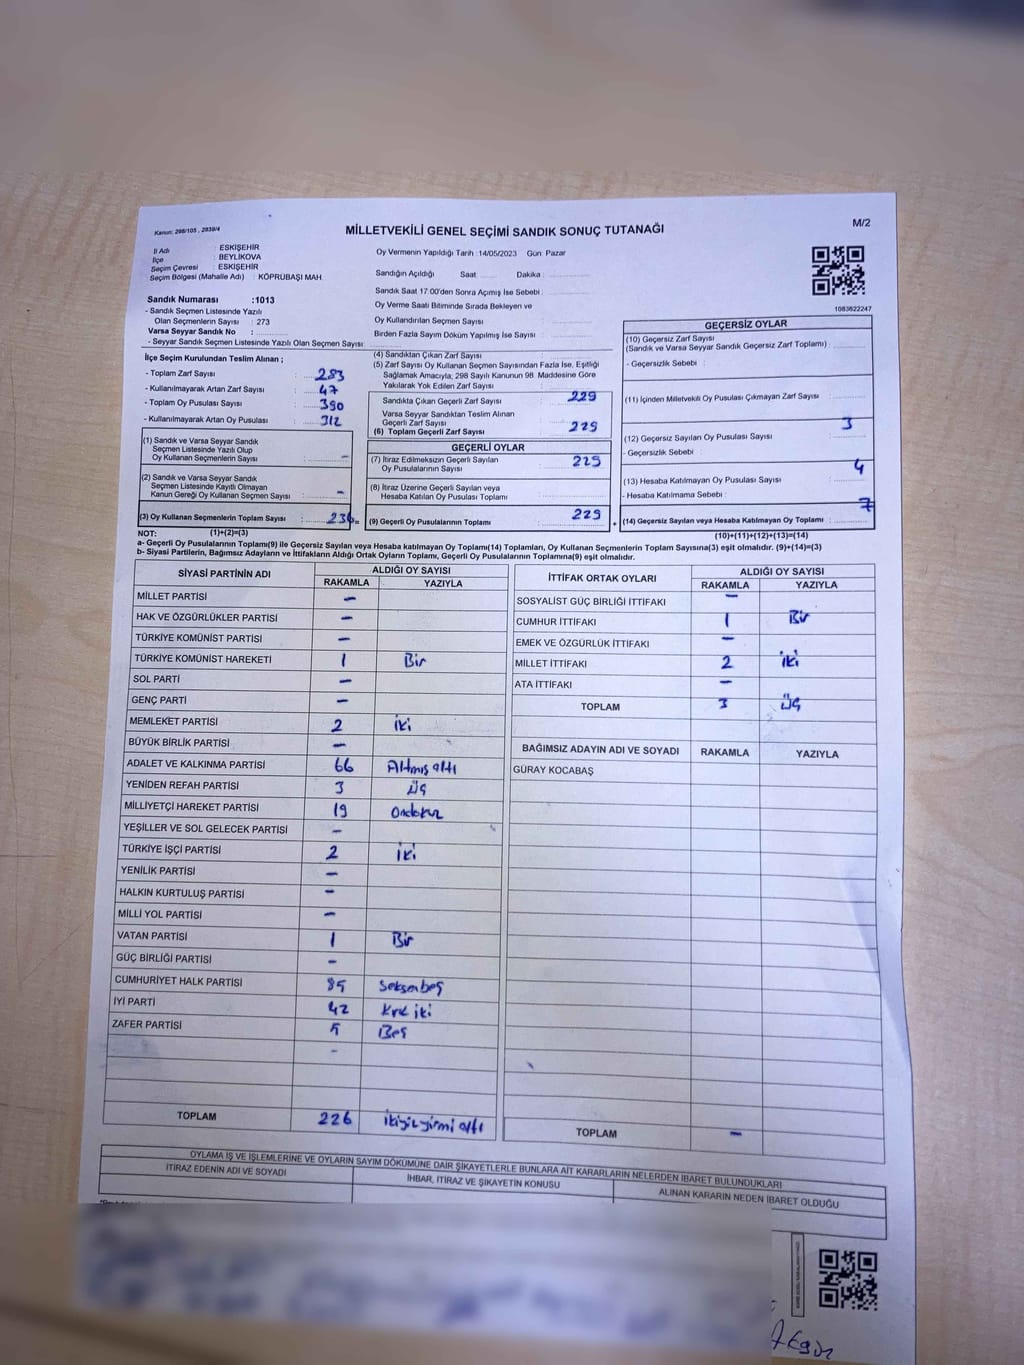 Kanun: 298/105 , 2839/4
MİLLETVEKİLİ GENEL SEÇİMİ SANDIK SONUÇ TUTANAĞI
M/2
İl Adı : ESKİŞEHİR
İlçe : BEYLİKOVA
Seçim Çevresi : ESKİŞEHİR
Seçim Bölgesi (Mahalle Adı) : KÖPRÜBAŞI MAH.
Oy Vermenin Yapıldığı Tarih :14/05/2023 Gün: Pazar
Sandığın Açıldığı Saat ........ Dakika : ........
Sandık Saat 17:00'den Sonra Açılmış İse Sebebi :
Oy Verme Saati Bitiminde Sırada Bekleyen ve
Oy Kullandırılan Seçmen Sayısı
Birden Fazla Sayım Döküm Yapılmış İse Sayısı :
1083622247
Sandık Numarası :1013
- Sandık Seçmen Listesinde Yazılı
Olan Seçmenlerin Sayısı : 273
Varsa Seyyar Sandık No :
- Seyyar Sandık Seçmen Listesinde Yazılı Olan Seçmen Sayısı :
İlçe Seçim Kurulundan Teslim Alınan ;
- Toplam Zarf Sayısı : 283
- Kullanılmayarak Artan Zarf Sayısı : 47
- Toplam Oy Pusulası Sayısı : 390
- Kullanılmayarak Artan Oy Pusulası : 312
(1) Sandık ve Varsa Seyyar Sandık
Seçmen Listesinde Yazılı Olup
Oy Kullanan Seçmenlerin Sayısı : -
(2) Sandık ve Varsa Seyyar Sandık
Seçmen Listesinde Kayıtlı Olmayan
Kanun Gereği Oy Kullanan Seçmen Sayısı : -
(3) Oy Kullanan Seçmenlerin Toplam Sayısı : 236 =
(1)+(2)=(3)
(4) Sandıktan Çıkan Zarf Sayısı
(5) Zarf Sayısı Oy Kullanan Seçmen Sayısından Fazla İse, Eşitliği
Sağlamak Amacıyla; 298 Sayılı Kanunun 98. Maddesine Göre
Yakılarak Yok Edilen Zarf Sayısı
Sandıkta Çıkan Geçerli Zarf Sayısı : 229
Varsa Seyyar Sandıktan Teslim Alınan
Geçerli Zarf Sayısı
(6) Toplam Geçerli Zarf Sayısı : 229
GEÇERLİ OYLAR
(7) İtiraz Edilmeksizin Geçerli Sayılan
Oy Pusulalarının Sayısı : 229
(8) İtiraz Üzerine Geçerli Sayılan veya
Hesaba Katılan Oy Pusulası Toplamı
(9) Geçerli Oy Pusulalarının Toplamı : 229 +
GEÇERSİZ OYLAR
(10) Geçersiz Zarf Sayısı
(Sandık ve Varsa Seyyar Sandık Geçersiz Zarf Toplamı) :
- Geçersizlik Sebebi :
(11) İçinden Milletvekili Oy Pusulası Çıkmayan Zarf Sayısı :
3
(12) Geçersiz Sayılan Oy Pusulası Sayısı :
- Geçersizlik Sebebi :
4
(13) Hesaba Katılmayan Oy Pusulası Sayısı :
- Hesaba Katılmama Sebebi :
7
(14) Geçersiz Sayılan veya Hesaba Katılmayan Oy Toplamı :
(10)+(11)+(12)+(13)=(14)
NOT:
a- Geçerli Oy Pusulaları Toplamı(9) ile Geçersiz Sayılan veya Hesaba katılmayan Oy Toplamı(14) Toplamları, Oy Kullanan Seçmenlerin Toplam Sayısına(3) eşit olmalıdır. (9)+(14)=(3)
b- Siyasi Partilerin, Bağımsız Adayların ve İttifakların Aldığı Ortak Oyların Toplamı, Geçerli Oy Pusulalarının Toplamına(9) eşit olmalıdır.
SİYASİ PARTİNİN ADI ALDIĞI OY SAYISI
RAKAMLA YAZIYLA
MİLLET PARTİSİ -
HAK VE ÖZGÜRLÜKLER PARTİSİ -
TÜRKİYE KOMÜNİST PARTİSİ -
TÜRKİYE KOMÜNİST HAREKETİ 1 Bir
SOL PARTİ -
GENÇ PARTİ -
MEMLEKET PARTİSİ 2 iki
BÜYÜK BİRLİK PARTİSİ -
ADALET VE KALKINMA PARTİSİ 66 Altmış altı
YENİDEN REFAH PARTİSİ 3 üç
MİLLİYETÇİ HAREKET PARTİSİ 19 Ondokuz
YEŞİLLER VE SOL GELECEK PARTİSİ -
TÜRKİYE İŞÇİ PARTİSİ 2 iki
YENİLİK PARTİSİ -
HALKIN KURTULUŞ PARTİSİ -
MİLLİ YOL PARTİSİ -
VATAN PARTİSİ 1 Bir
GÜÇ BİRLİĞİ PARTİSİ -
CUMHURİYET HALK PARTİSİ 85 Seksenbeş
İYİ PARTİ 42 Kırk iki
ZAFER PARTİSİ 5 Beş
-
TOPLAM 226 ikiyüzyirmi altı
İTTİFAK ORTAK OYLARI ALDIĞI OY SAYISI
RAKAMLA YAZIYLA
SOSYALİST GÜÇ BİRLİĞİ İTTİFAKI -
CUMHUR İTTİFAKI 1 Bir
EMEK VE ÖZGÜRLÜK İTTİFAKI -
MİLLET İTTİFAKI 2 iki
ATA İTTİFAKI -
TOPLAM 3 üç
BAĞIMSIZ ADAYIN ADI VE SOYADI RAKAMLA YAZIYLA
GÜRAY KOCABAŞ
TOPLAM -
OYLAMA İŞ VE İŞLEMLERİNE VE OYLARIN SAYIM DÖKÜMÜNE DAİR ŞİKAYETLERLE BUNLARA AİT KARARLARIN NELERDEN İBARET BULUNDUKLARI
İTİRAZ EDENİN ADI VE SOYADI İHBAR, İTİRAZ VE ŞİKAYETİN KONUSU ALINAN KARARIN NEDEN İBARET OLDUĞU